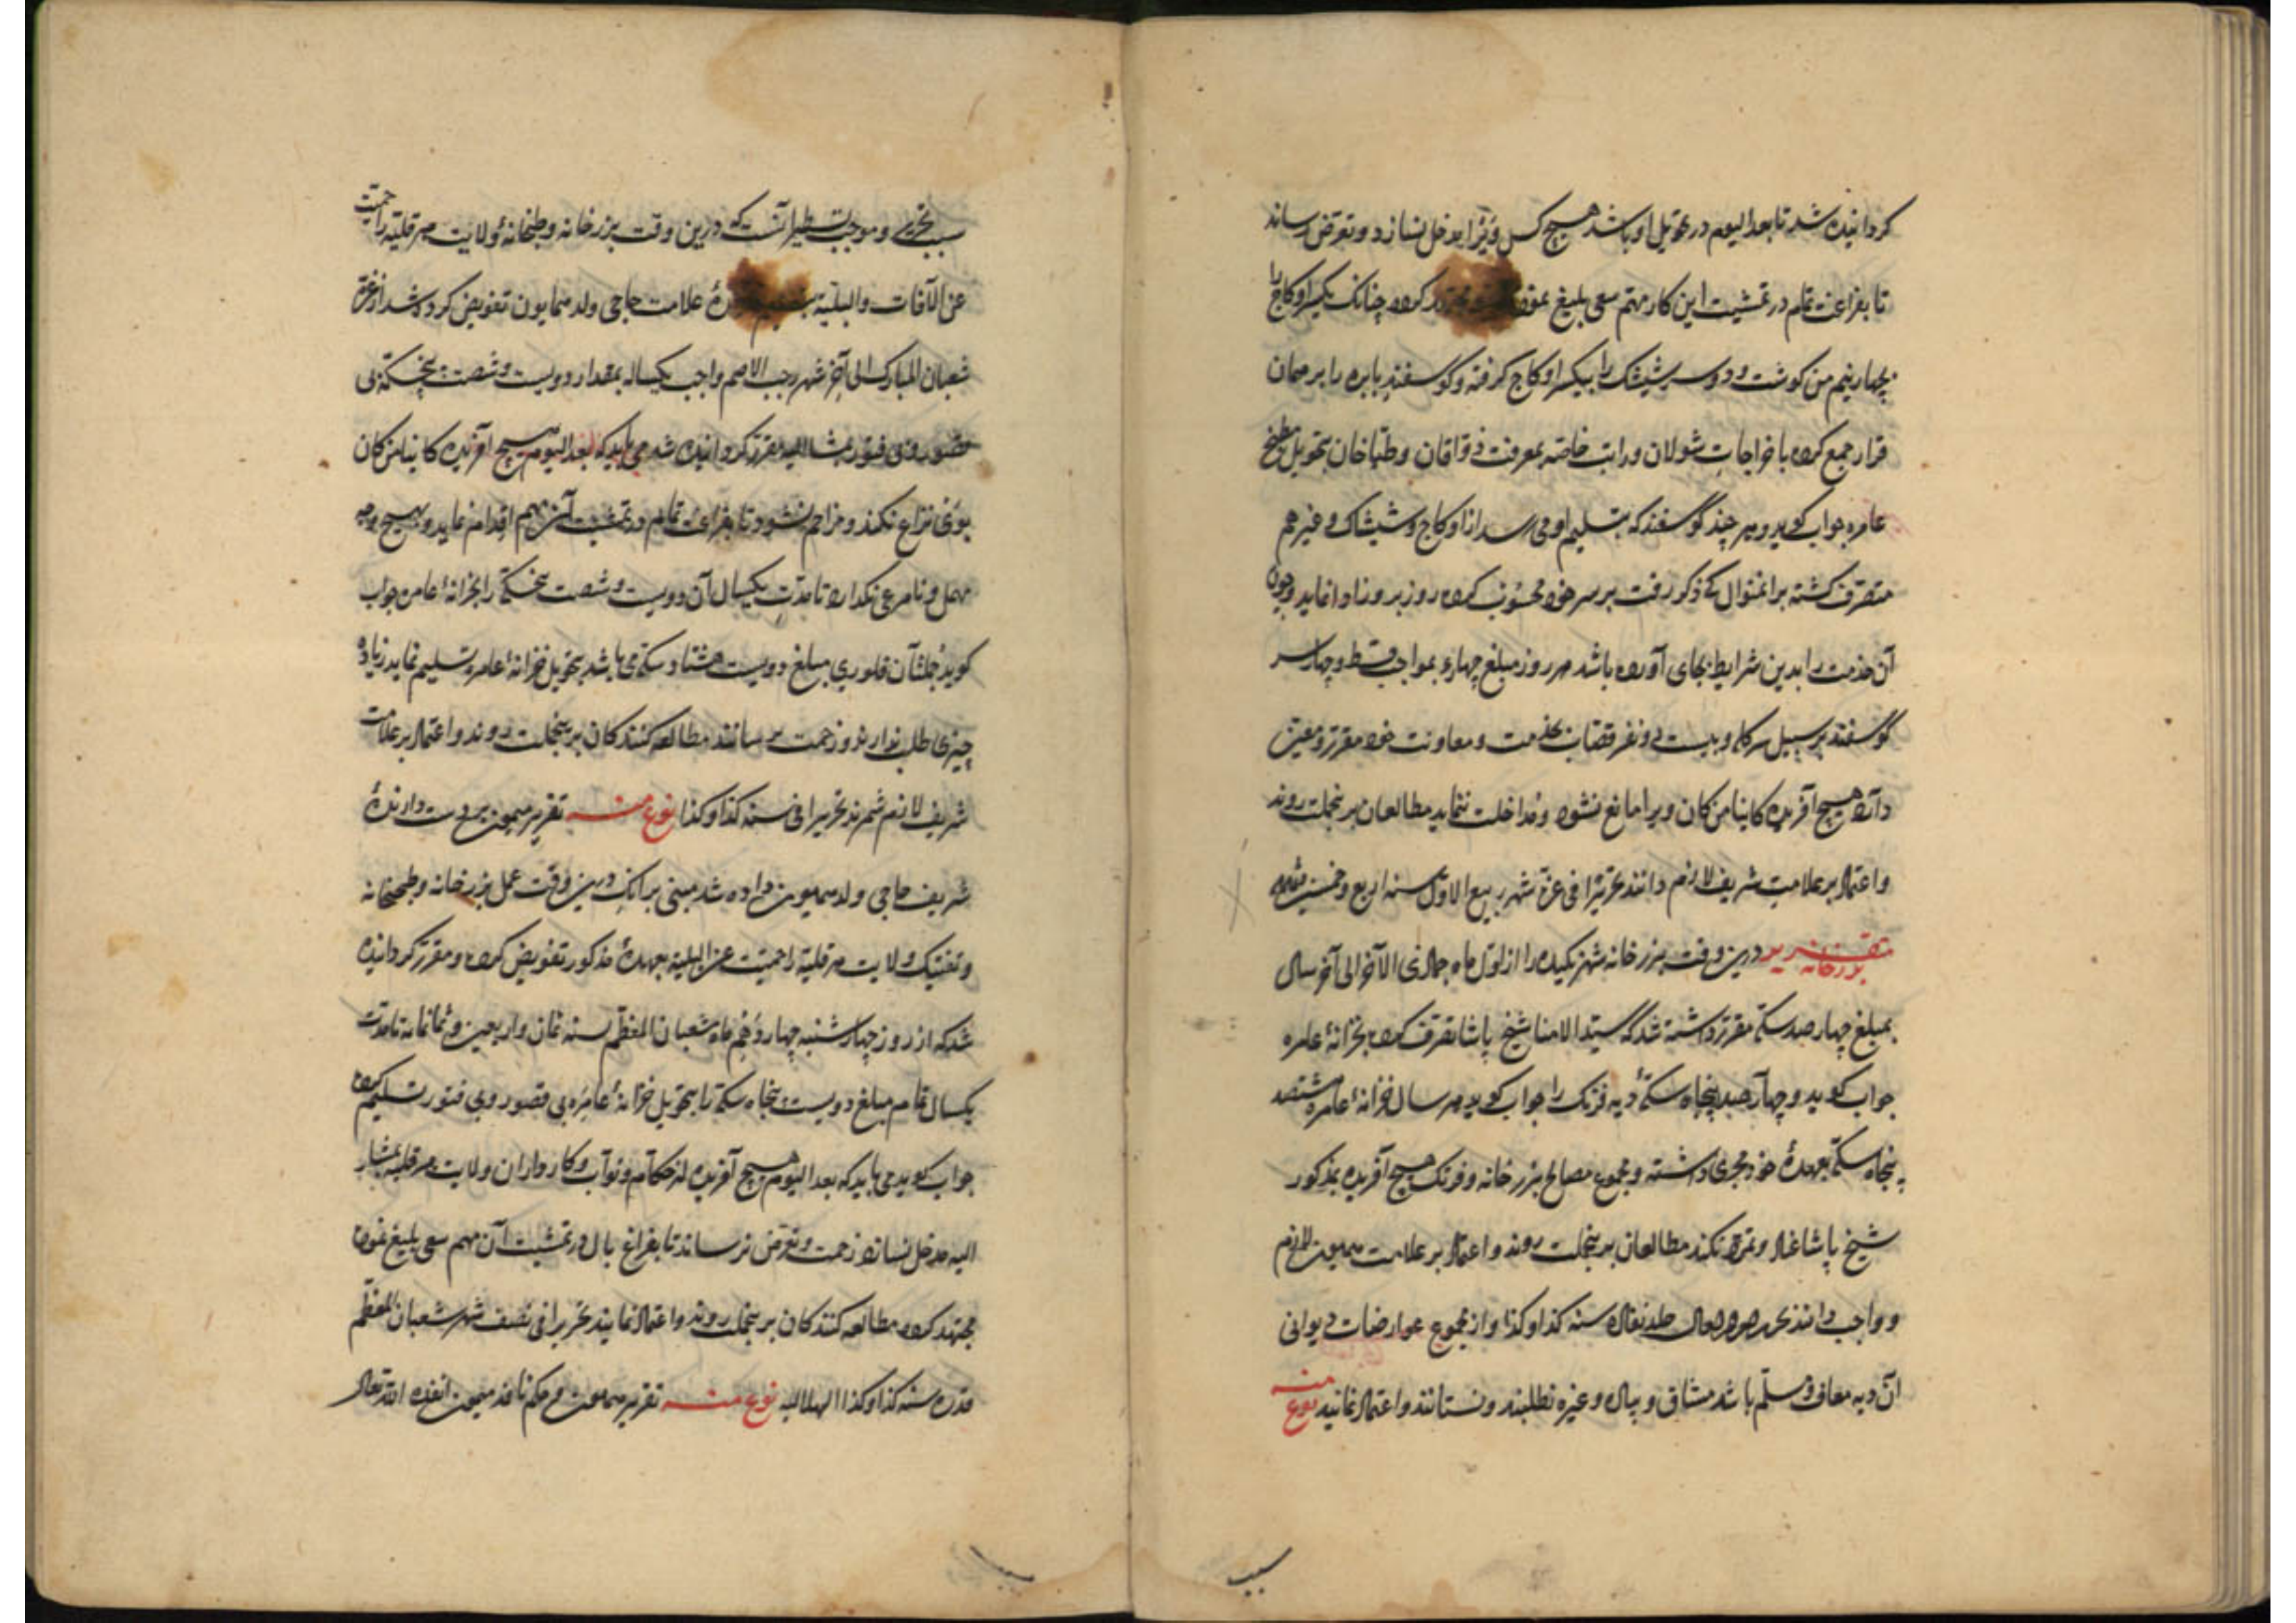 کردانیده شد تا بعد الیوم در تحویل او باشد هیچ کس ویرا مدخل نسازد و تعرض نرساند
تا بفراغت تمام در تمشیت این کار مهتم سعی بلیغ کرده چنانک یکسر اوکاج را
بچهار نیم من کوشت و دو سر شیشک را بیکسر اوکاج کرفته و گوسفند بابره را بر همان
قرار جمع کرده با خراجات شولان و راتب خاصه بمعرفت ذواقان و طباخان بتحویل مطبخ
عامره جواب کوید و هر چند گوسفند که بتسلیم او می رسد از اوکاج و شیشاک و غیرهم
متصرف کشته برا نمنوال که ذکر رفت بر سر خود محسوب کرده روز بروز ادا نماید و چون
آن خدمت را بدین شرایط بجای آورده باشد هر روز مبلغ چهار بمواجب و چهار سر
گوسفند بر سبیل و بیست و دو نفر قصاب بخدمت و معاونت خود مقرر و معین
داند هیچ آفریده کاینا من کان ویرا مانع نشود و مداخلت ننماید مطالعان برینجملت روند
و اعتماد بر علامت شریف لازم دانند تحریرا فی غرة شهر ربیع الاول سنه اربع و خمسین
تقریر بزرخانه درین وقت بزرخانه شهر را از اول ماه جمادی الآخر الی آخر سال
بمبلغ چهار صد سکه مقرر داشته شد که سید الامنا شیخ پاشا تصرف کرده بخزانهٔ عامره
جواب کوید و چهار صد پنجاه سکهٔ دیه فرنک را جواب کوید هر سال خزانهٔ عامره هشتصد
پنجاه سکه بعهدهٔ خود مجری داشته و مجموع مصالح بزرخانه و فرنک هیچ آفریده بمذکور
شیخ پاشا و تمرد نکند مطالعان برینجملت روند و اعتماد بر علامت همیون لازم
و واجب دانند سنه کذا و کذا و از مجموع عوارضات دیوانی
آن دیه معاف و مسلم باشد و غیره نطلبند و نستانند و اعتماد نمانید نوع منه
سبب
سبب تحریر و موجب تسطیر آنست که درین وقت بزرخانه و طبخانهٔ ولایت را حمیت
عن الآفات و البلیة علامت حاجی ولد همایون تفویض کرده شد از غرة
شعبان المبارک الی آخر شهر رجب الاصم واجب یکساله بمقدار دویست و شصت پنج سکه بی
قصور و بی فتور بمشار الیه مقرر کردانیده شد می باید که بعد الیوم هیچ آفریده کاینا من کان
بوی نزاع نکند و مزاحم نشود تا بفراغت تمام در تمشیت آن مهم اقدام نماید و بهیچ وجه
مهمل و نامرعی نکذارد تا مدت یکسال آن دویست و شصت پنج سکه را بخزانهٔ عامره جواب
کوید جملتان فلوری مبلغ دویست هشتاد سکه می باشد بتحویل خزانهٔ عامره تسلیم نماید زیاده
چیزی طلب ندارند و زحمت نرسانند مطالعه کنندکان برینجملت روند و اعتماد بر علامت
شریف لازم شمرند تحریرا فی سنه کذا و کذا نوع منه تقریر همیون بر دست دارندهٔ
شریف حاجی ولد همیون داده شد مبنی بر آنک درین وقت عمل بزرخانه و طبخانه
ولایت را حمیت عن البلیة بعهدهٔ مذکور تفویض کرده و مقرر کردانیده
شد که از روز چهار شنبه چهاردهم ماه شعبان المعظم سنه ثمان و اربعین و ثمانمایه تا مدت
یکسال تمام مبلغ دویست پنجاه سکه را بتحویل خزانهٔ عامره بی قصور و بی فتور تسلیم کرده
جواب کوید می باید که بعد الیوم هیچ آفریده از حکام و نواب و کارداران ولایت بمشار
الیه مدخل نسازد زحمت و تعرض نرساند تا بفراغ بال در تمشیت آن مهم سعی بلیغ نموده
مجتهد کرده مطالعه کنندکان برینجملت روند و اعتماد نمایند تحریرا فی نصف شهر شعبان المعظم
قدره سنه کذا و کذا الهلالیه نوع منه تقریر همیون و حکم نافذ میمون انفذه الله تعالی